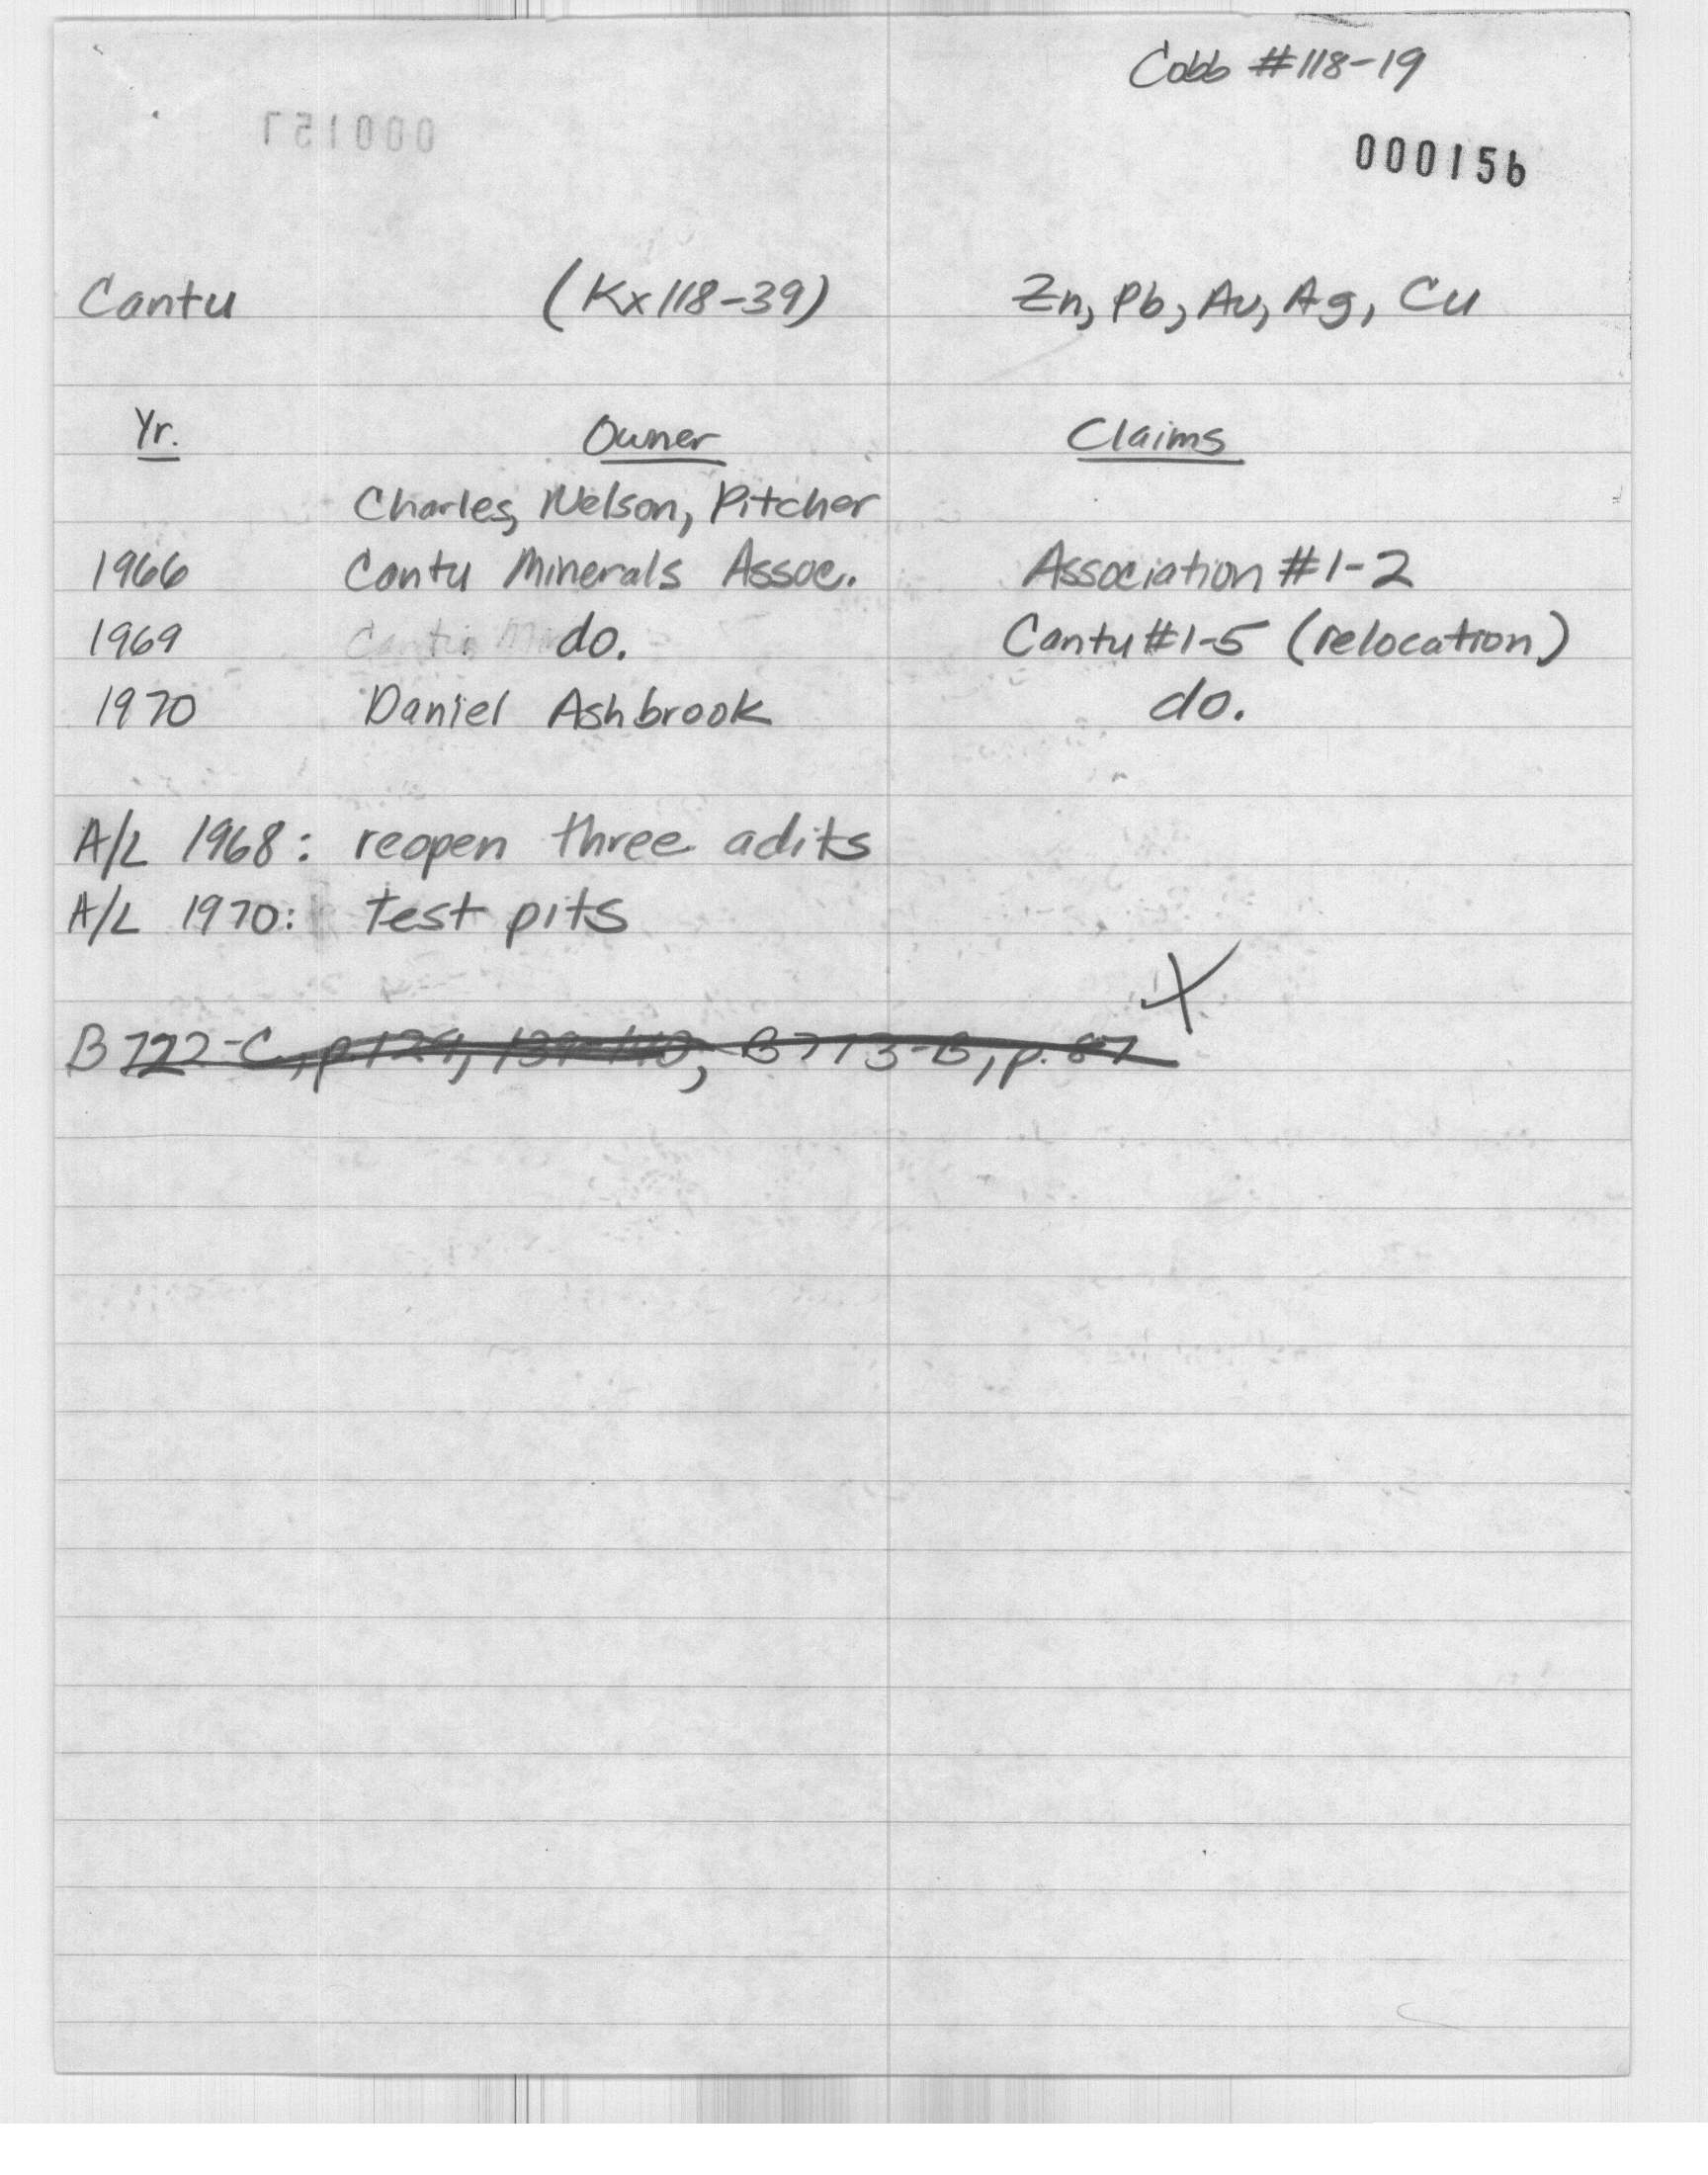 Cobb #118-19
000157
000156
Cantu (Kx118-39) Zn, Pb, Au, Ag, Cu
Yr. Owner Claims
Charles, Nelson, Pitcher
1966 Cantu Minerals Assoc. Association #1-2
1969 do. Cantu #1-5 (relocation)
1970 Daniel Ashbrook do.
A/L 1968: reopen three adits
A/L 1970: test pits
X
B722-C, p.129, 139-140, B773-B, p.87